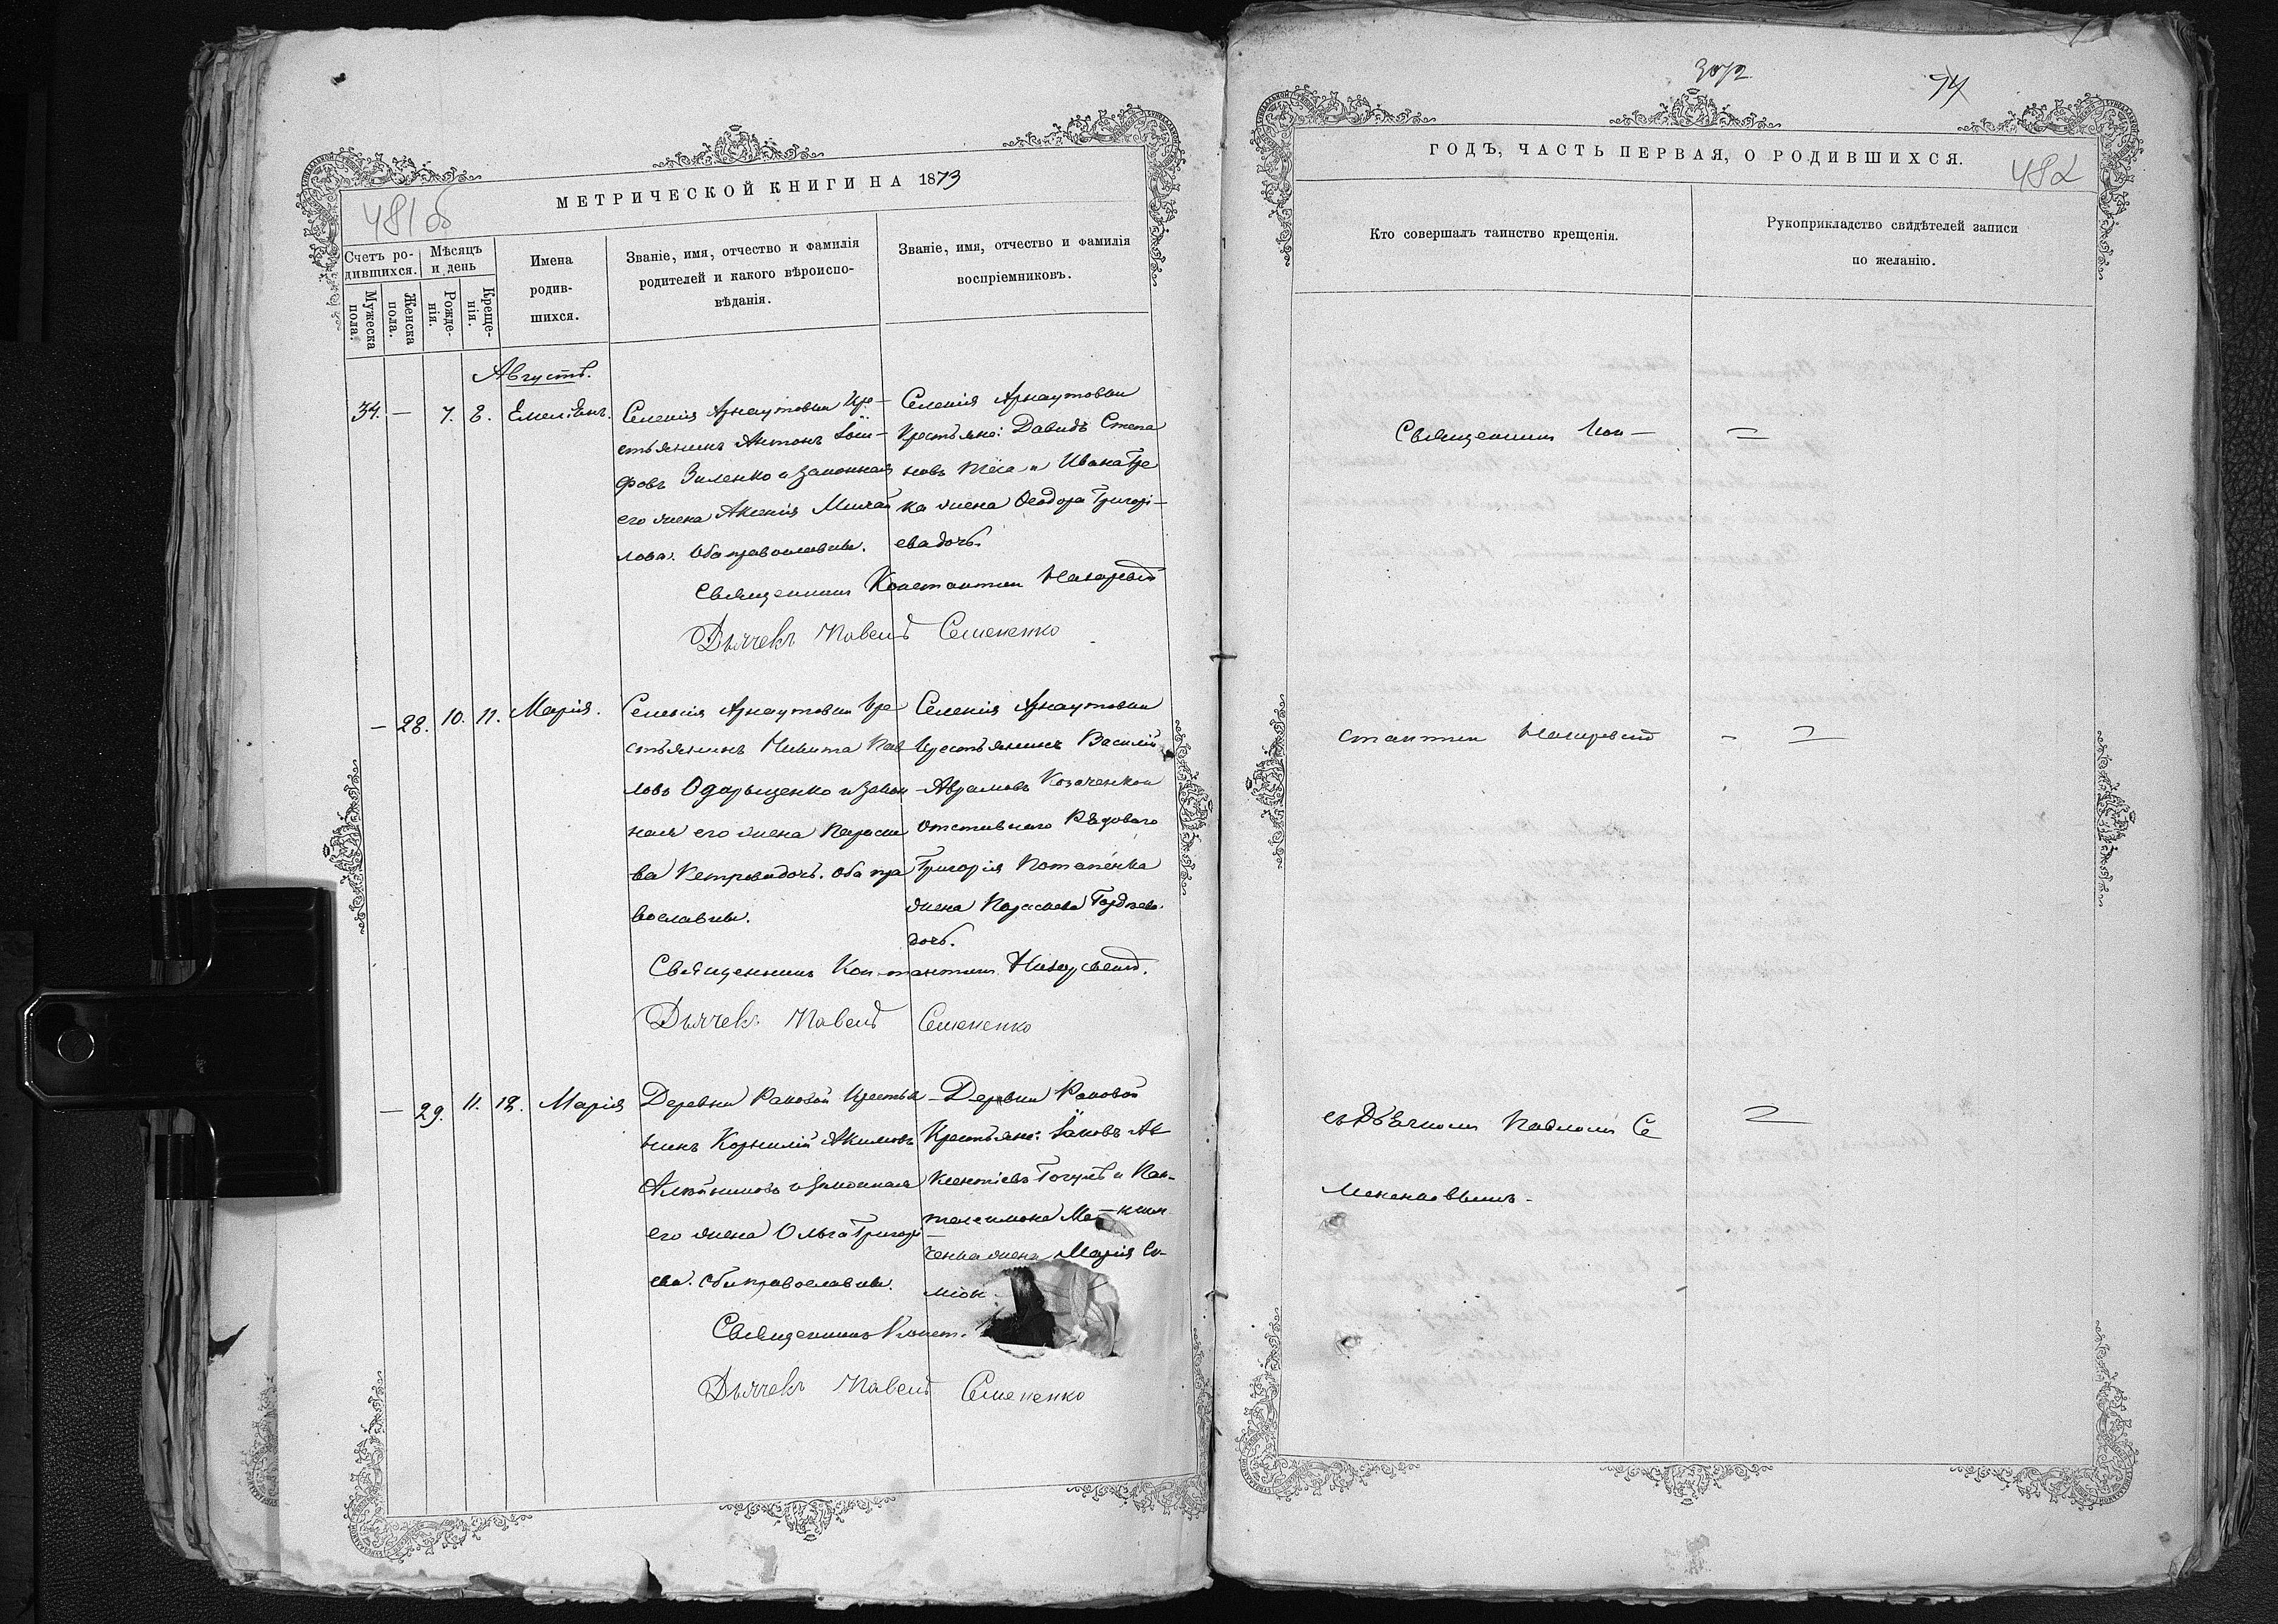 481 об
МЕТРИЧЕСКОЙ КНИГИ НА 1873
Счетъ ро-
дившихся.
Мѣсяцъ
и день
Мужеска
пола.
Женска
пола.
Рожде-
нія.
Креще-
нія.
Имена
родив-
шихся.
Званіе, имя, отчество и фамилія
родителей и какого вѣроиспо-
вѣданія.
Званіе, имя, отчество и фамилія
воспріемниковъ.
Августъ.
34. — 7. 8. Емеліанъ.
Селенія Арнаутовки Кре-
стьянинъ Антонъ Іоси-
фовъ Зиленко и законная
его жена Аксенія Михаи
лова. Оба православны.
Селенія Арнаутовки
Крестьяне: Давидъ Степа
новъ и Ивана Гре
ка жена Феодора Григорі-
ева дочь.
Священникъ Константин
Дьячекъ Павелъ Семененко
— 28. 10. 11. Марія.
Селенія Арнаутовки Кре
стьянинъ Никита Пав
ловъ Одарыщенко и закон
ная его жена Параске
ва Петрова дочь. Оба пра
вославны.
Селенія Арнаутовки
Крестьянинъ Василій
Аврамовъ Козаченко и
Отставнаго Рядоваго
Григорія Потапенка
жена Параскева
дочь.
Священникъ Константин
Дьячекъ Павелъ Семененко
— 29. 11. 12. Марія
Деревни Раковой Крестья
нинъ Корнилій Акимовъ
и законная
его жена Ольга Григорі
ева. Оба православны.
Деревни Раковой
Крестьяне: Іаковъ Ав
ксентіевъ и Пан-
телеимона
ченка жена Марія Си-
міон
Священникъ Конст.
Дьячекъ Павелъ Семененко
74
482
ГОДЪ, ЧАСТЬ ПЕРВАЯ, О РОДИВШИХСЯ.
Кто совершалъ таинство крещенія.
Рукоприкладство свидѣтелей записи
по желанію.
Священникъ Кон —
стантин
съ Дьячкомъ Павломъ Се
мененковымъ.